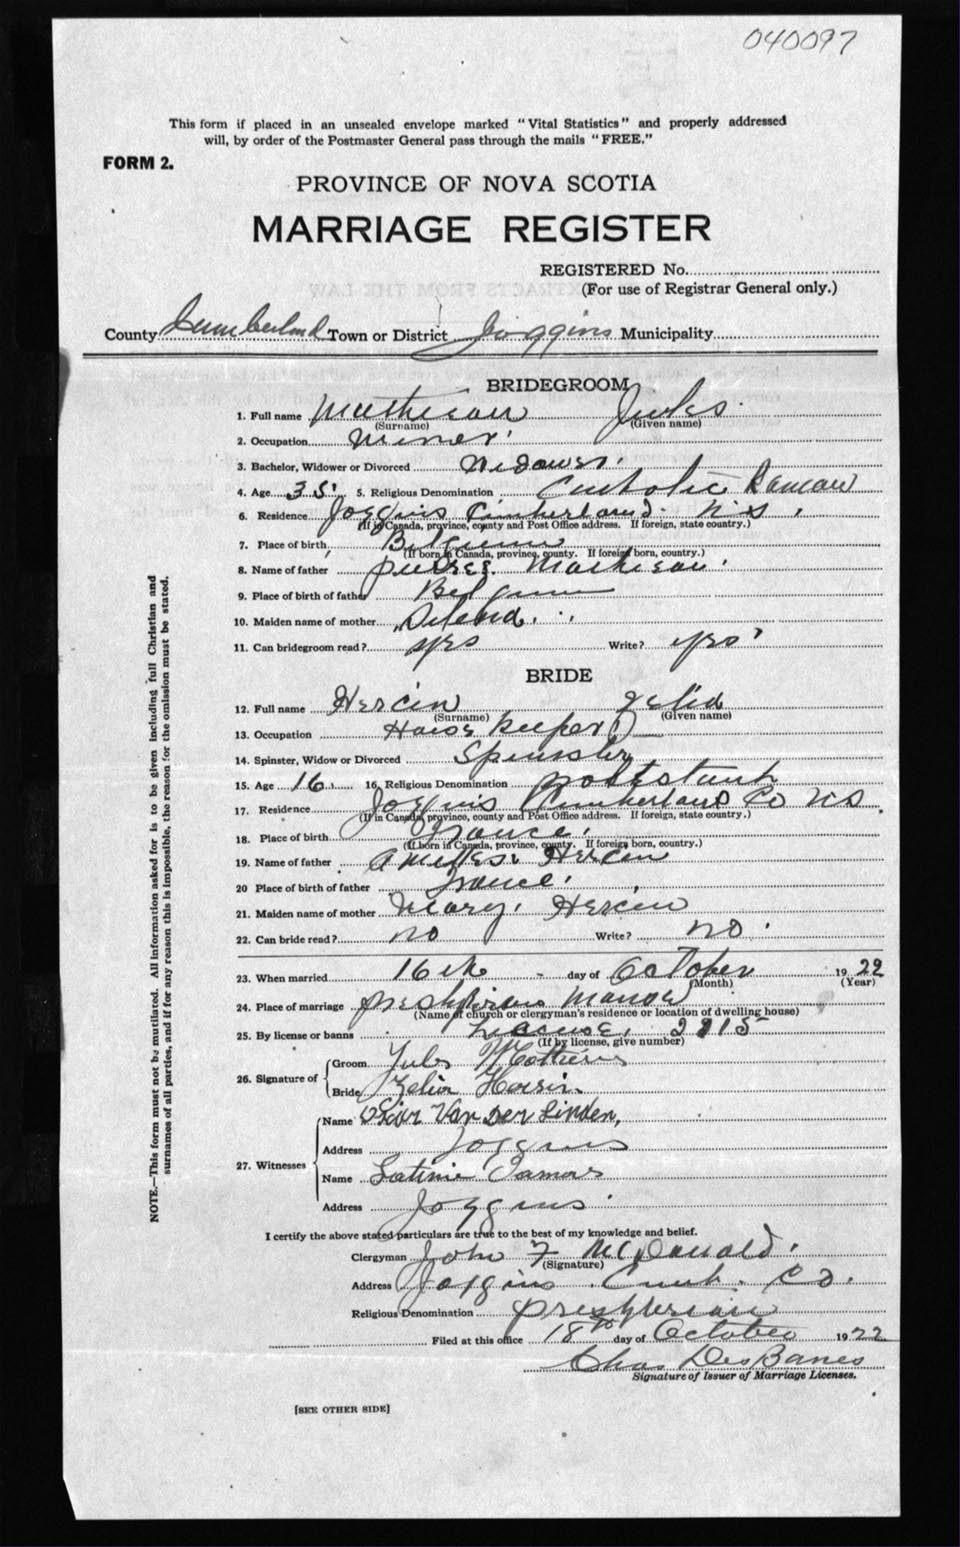 040097
This form if placed in an unsealed envelope marked "Vital Statistics" and properly addressed
will, by order of the Postmaster General pass through the mails "FREE."
FORM 2.
PROVINCE OF NOVA SCOTIA
MARRIAGE REGISTER
REGISTERED No.
(For use of Registrar General only.)
County Cumberland Town or District Joggins Municipality
BRIDEGROOM
1. Full name Mathieau Jules
(Surname) (Given name)
2. Occupation Miner
3. Bachelor, Widower or Divorced Widower
4. Age 35 5. Religious Denomination Catholic Raman
6. Residence Joggins Cumberland N.S.
(If in Canada, province, county and Post Office address. If foreign, state country.)
7. Place of birth Belgium
(If born in Canada, province, county. If foreign born, country.)
8. Name of father Mathieau
9. Place of birth of father Belgium
10. Maiden name of mother
11. Can bridegroom read? yes Write? yes
BRIDE
12. Full name Hercin Zelia
(Surname) (Given name)
13. Occupation House keeper
14. Spinster, Widow or Divorced Spinster
15. Age 16 16. Religious Denomination
17. Residence Joggins Cumberland Co N.S.
(If in Canada, province, county and Post Office address. If foreign, state country.)
18. Place of birth France
(If born in Canada, province, county. If foreign born, country.)
19. Name of father Hercin
20 Place of birth of father France
21. Maiden name of mother Mary Hercin
22. Can bride read? no Write? no
23. When married 16th day of October 1922
(Month) (Year)
24. Place of marriage Manse
(Name of church or clergyman's residence or location of dwelling house)
25. By license or banns License 2915
(If by license, give number)
26. Signature of Groom Jules
Bride Zelia Hersin
27. Witnesses Name Van Der Linden,
Address Joggins
Name
Address Joggins
I certify the above stated particulars are true to the best of my knowledge and belief.
Clergyman John F McDonald
(Signature)
Address Joggins Cumb. Co.
Religious Denomination Presbyterian
Filed at this office 18th day of October 1922
Chas DesBarres
Signature of Issuer of Marriage Licenses.
[SEE OTHER SIDE]
NOTE.—This form must not be mutilated. All information asked for is to be given including full Christian and
surnames of all parties, and if for any reason this is impossible, the reason for the omission must be stated.